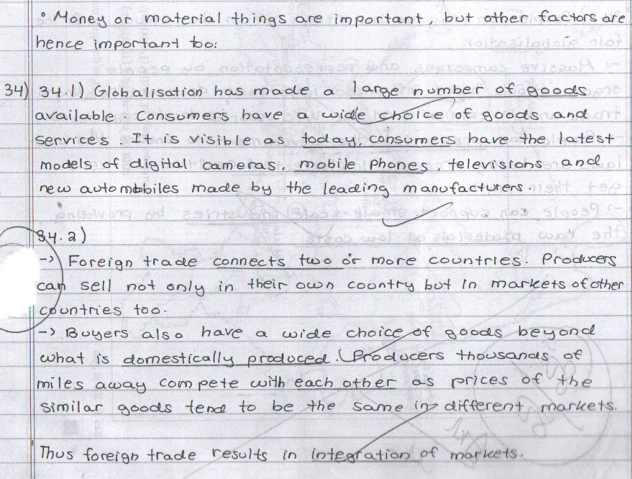 ° Money or material things are important, but other factors are
hence important too:
34) 34.1) Globalisation has made a large number of goods
available. Consumers have a wide choice of goods and
services. It is visible as today, consumers have the latest
models of digital cameras, mobile phones, televisions and
new automobiles made by the leading manufacturers.
34.2)
-> Foreign trade connects two or more countries. Producers
can sell not only in their own country but in markets of other
countries too.
-> Buyers also have a wide choice of goods beyond
what is domestically produced. Producers thousands of
miles away compete with each other as prices of the
similar goods tend to be the same in different markets.
Thus foreign trade results in integration of markets.